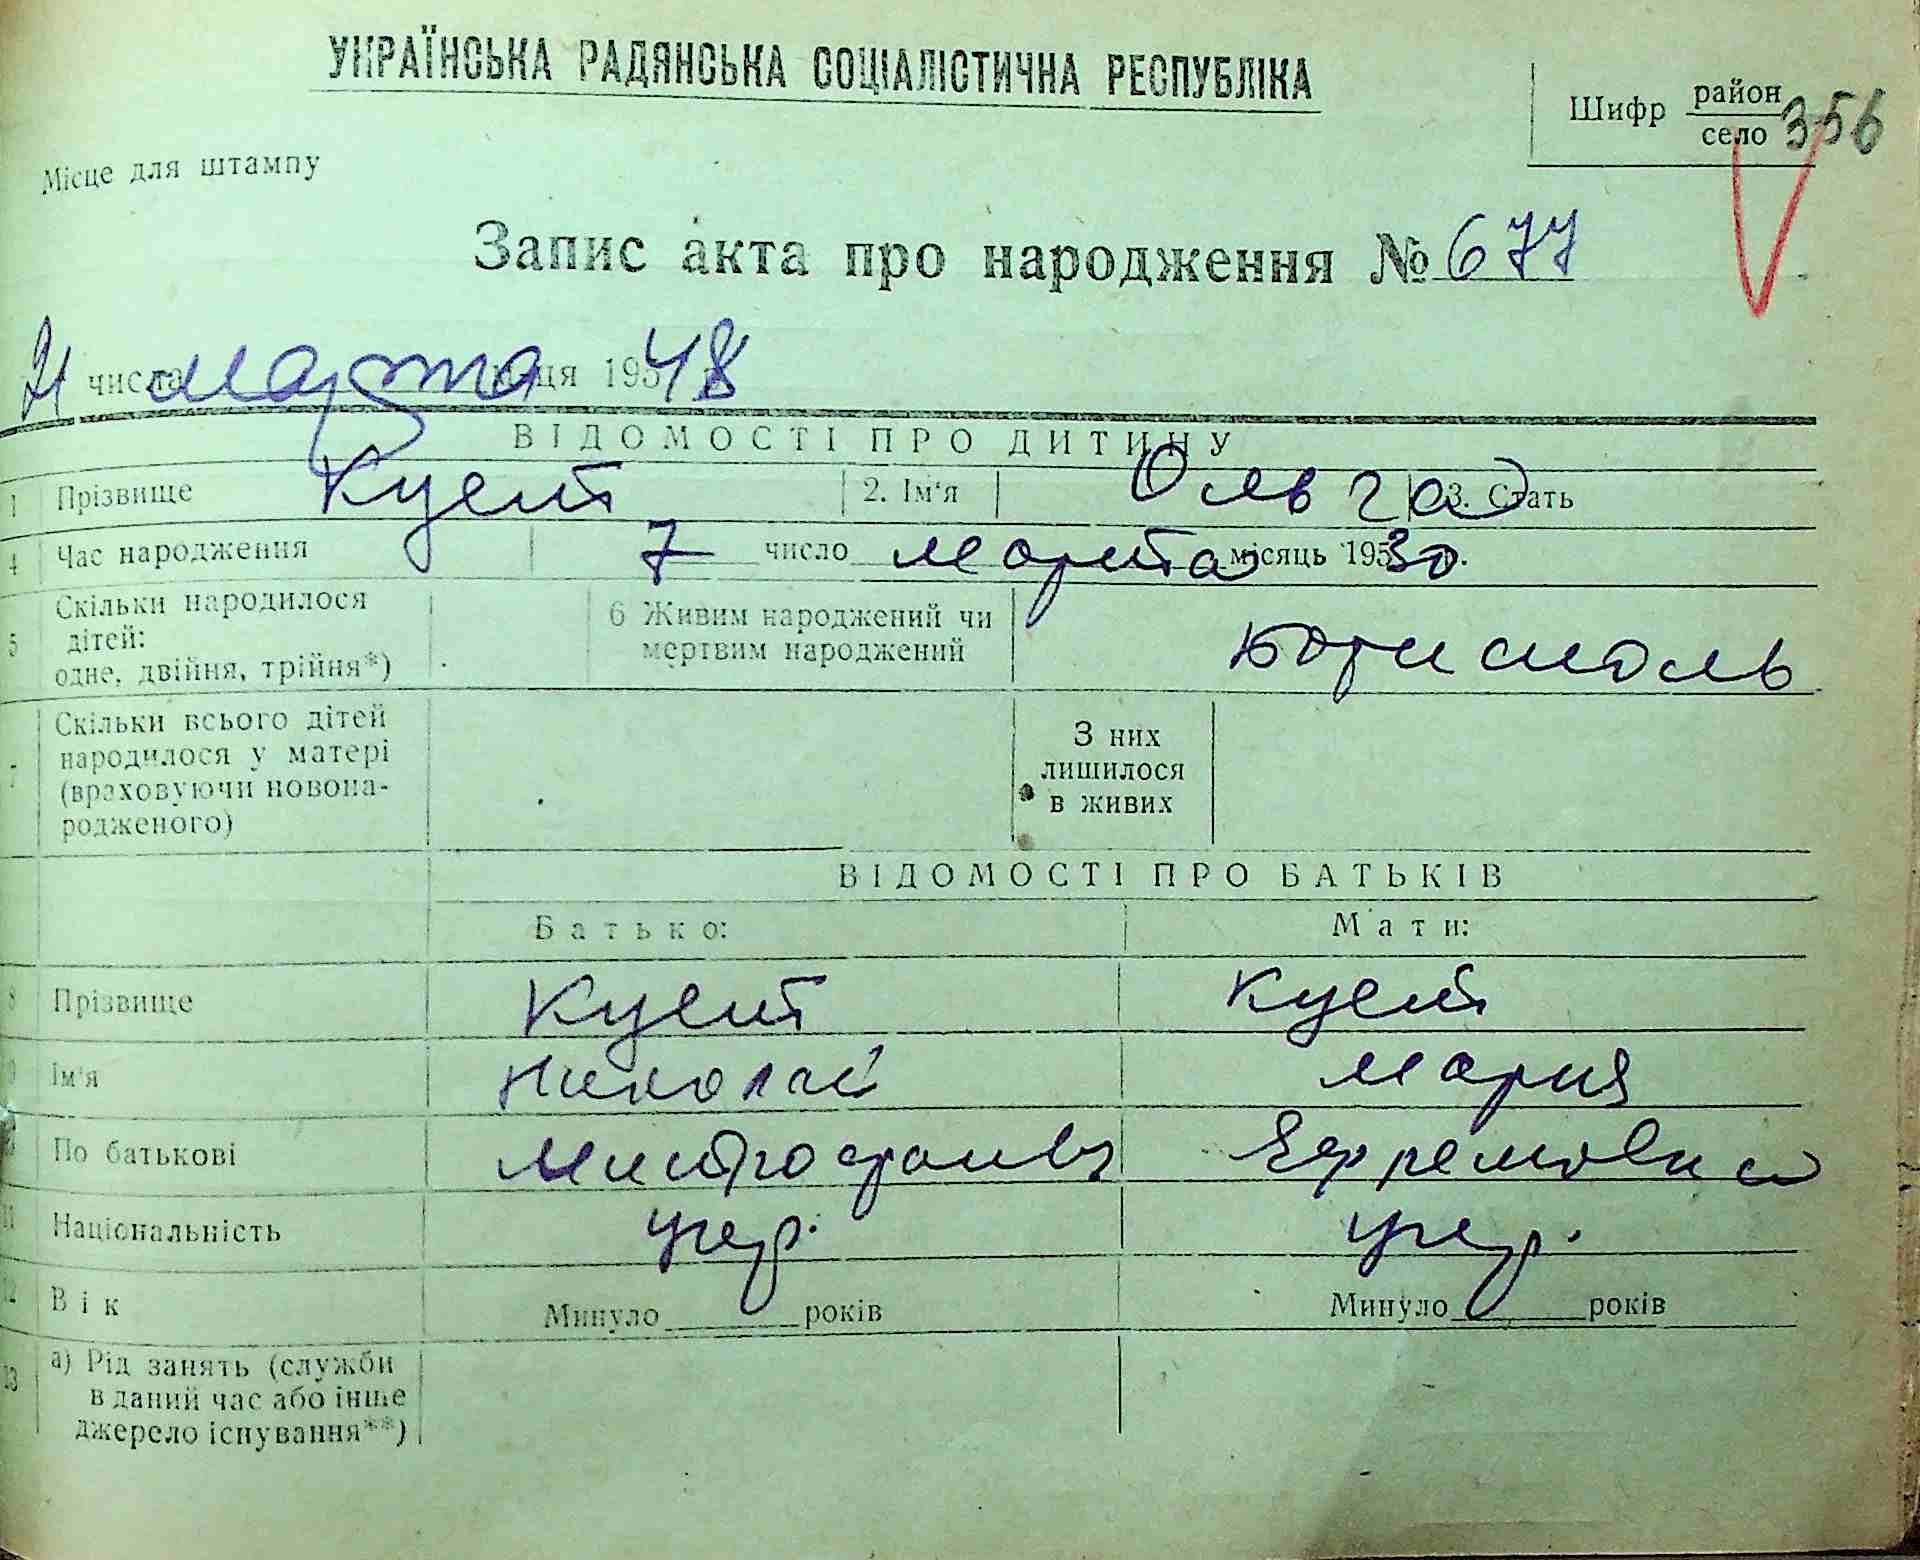 УКРАЇНСЬКА РАДЯНСЬКА СОЦІАЛІСТИЧНА РЕСПУБЛІКА
Шифр район село 356
Місце для штампу
Запис акта про народження № 677
21 числа марта місяця 195 48
ВІДОМОСТІ ПРО ДИТИНУ
1 Прізвище Куст 2. Ім'я Ольга 3. Стать
4 Час народження 7 число марта місяць 195 30 р.
5 Скільки народилося дітей: одне, двійня, трійня*) 6 Живим народжений чи мертвим народжений Борисполь
7 Скільки всього дітей народилося у матері (враховуючи новонародженого) З них лишилося в живих
ВІДОМОСТІ ПРО БАТЬКІВ
Батько: Мати:
8 Прізвище Куст Куст
9 Ім'я Николай Мария
10 По батькові Митрофанов Ефремовна
11 Національність укр. укр.
12 Вік Минуло років Минуло років
13 а) Рід занять (служби
в даний час або інше
джерело існування**)